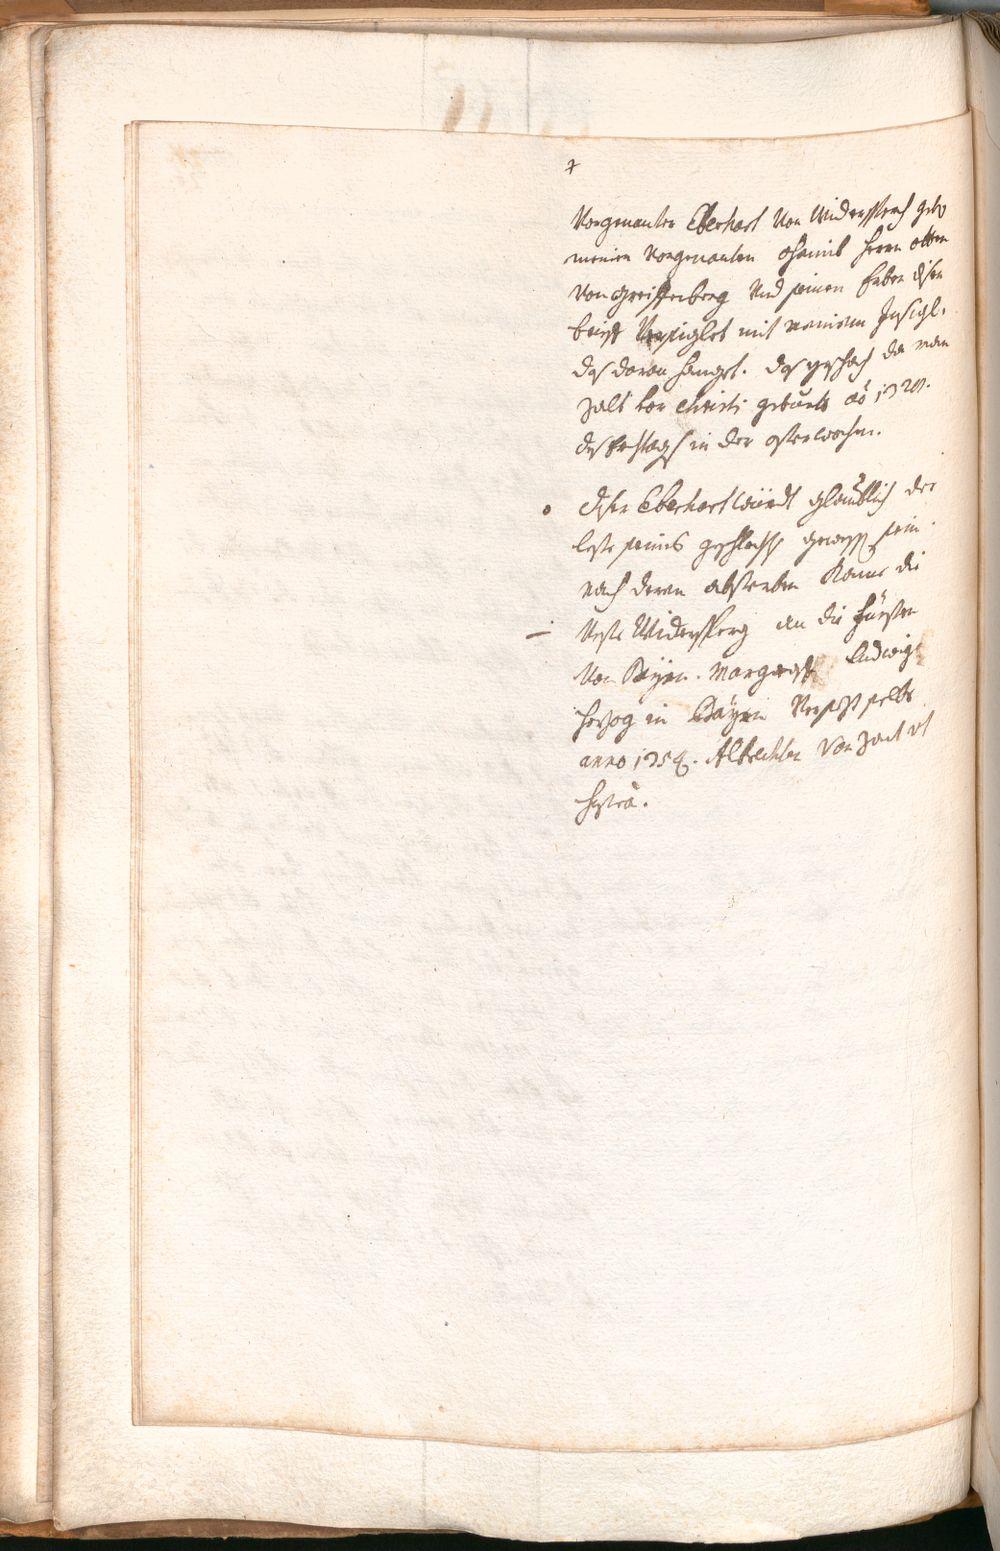 Vorgenanter Eberhart Von Widersperch gibe
meinen Vorgenanten Ohaimb Herrn otten
Von Greiffenberg Vnd seinen Erben disen
brieff Versiglet mit meinem Insigl.
das daran hanget. das geschach da man
zalt von Christi geburth
des in der osterwochen.
diser Eberhart würdt glaublich der
leste seines geschlechts gewest sein
nach deren absterben kame die
Veste Widersperg an die Fürsten
Von Bayrn. Marggraff Ludwig
Herzog in Bayrn Versezt selbe
anno Albrechten Von